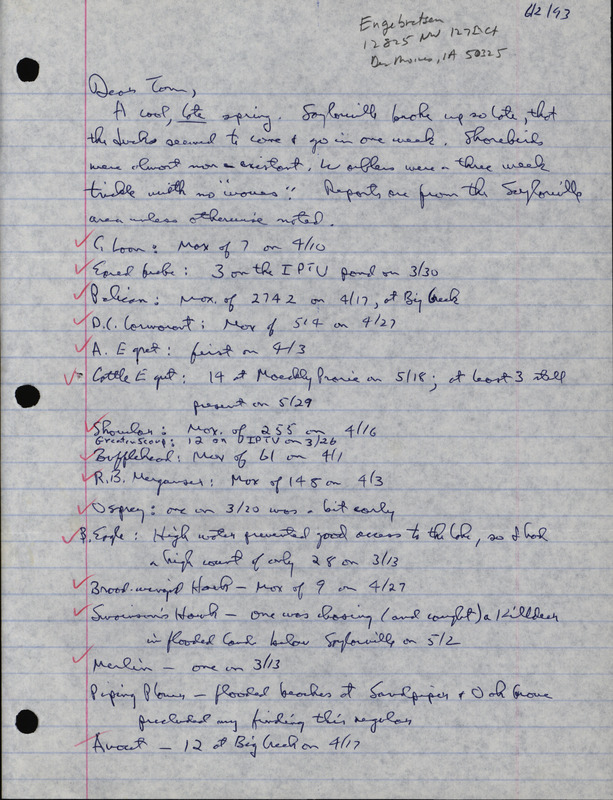 6/2/93
Engebretsen
12825 NW 127th Ct
Des Moines, IA 50325
Dear Tom,
A cool, late spring. Saylorville broke up so late, that
the ducks seemed to come & go in one week. Shorebirds
were almost non-existent. Warblers were a three week
trickle with no "waves". Reports are from the Saylorville
area unless otherwise noted.
C. Loon: Max of 7 on 4/10
Eared Grebe: 3 on the IPTV pond on 3/30
Pelican: Max. of 2742 on 4/17, at Big Creek
D.C. Cormorant: Max of 514 on 4/27
A. Egret: first on 4/3
Cattle Egret: 14 at Moeckly Prairie on 5/18; at least 3 still
present on 5/29
Shoveler: Max. of 255 on 4/16
Greater Scaup: 12 on IPTV on 3/26
Bufflehead: Max of 61 on 4/1
R.B. Merganser: Max of 148 on 4/3
Osprey: one on 3/20 was a bit early
B. Eagle: High water prevented good access to the lake, so I had
a high count of only 28 on 3/13
Broad-winged Hawk - Max of 9 on 4/27
Swainson's Hawk - one was chasing (and caught) a Killdeer
in flooded land below Saylorville on 5/2
Merlin - one on 3/13
Piping Plover - flooded beaches at Sandpiper & Oak Grove
precluded my finding this regular
Avocet - 12 at Big Creek on 4/17